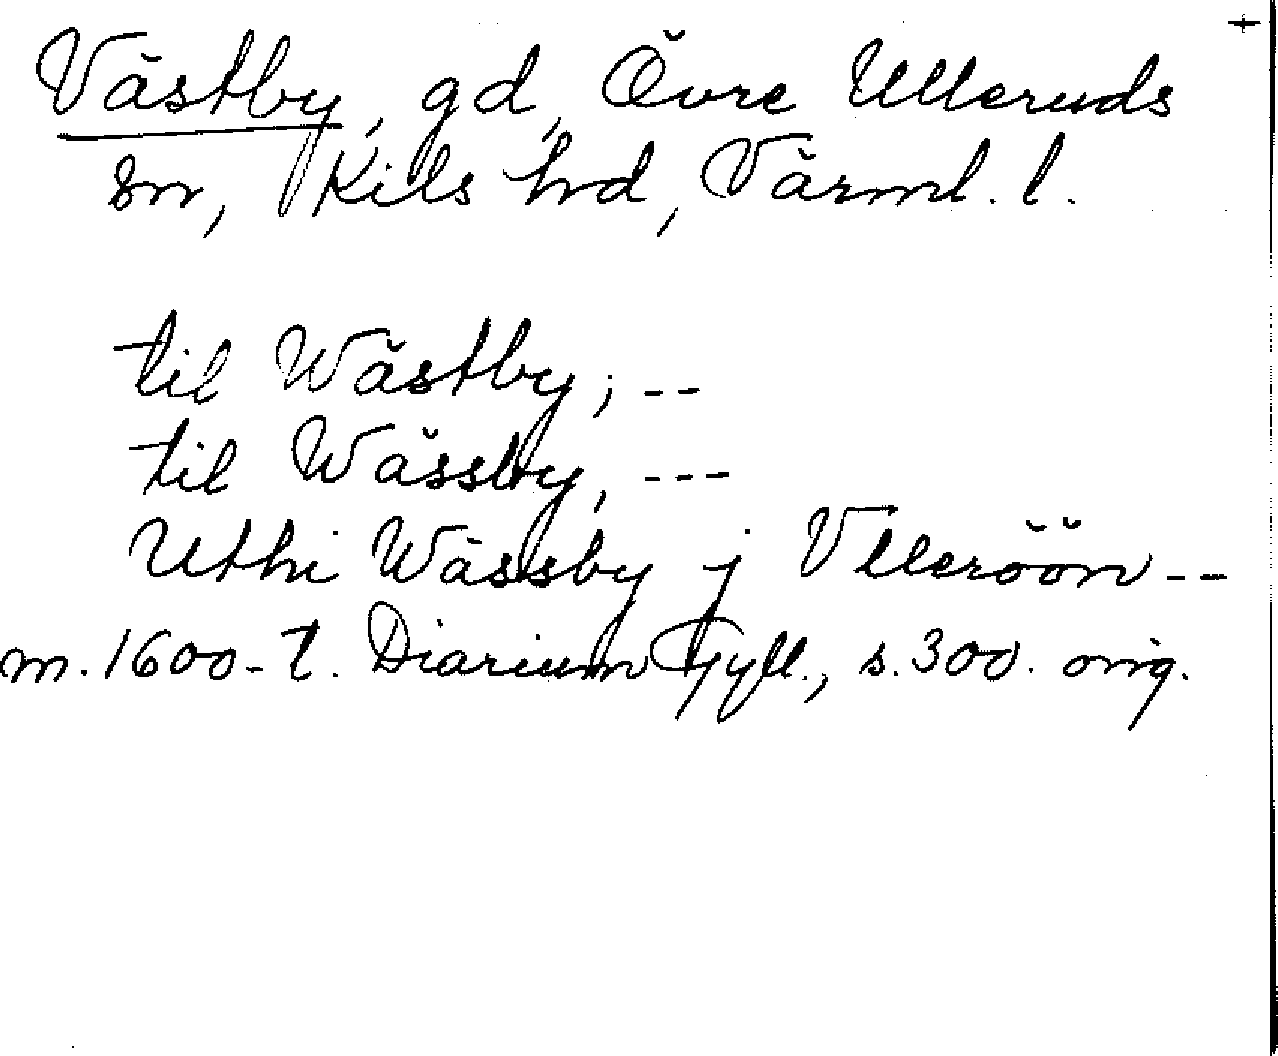 +
Västby, gd, Övre Ulleruds
sn, Kils hrd, Värml. l.
til Wästby; --
til Wässby, ---
Uthi Wässby j Vlleröön --
m. 1600-t. Diarium Gyll., s. 300. orig.